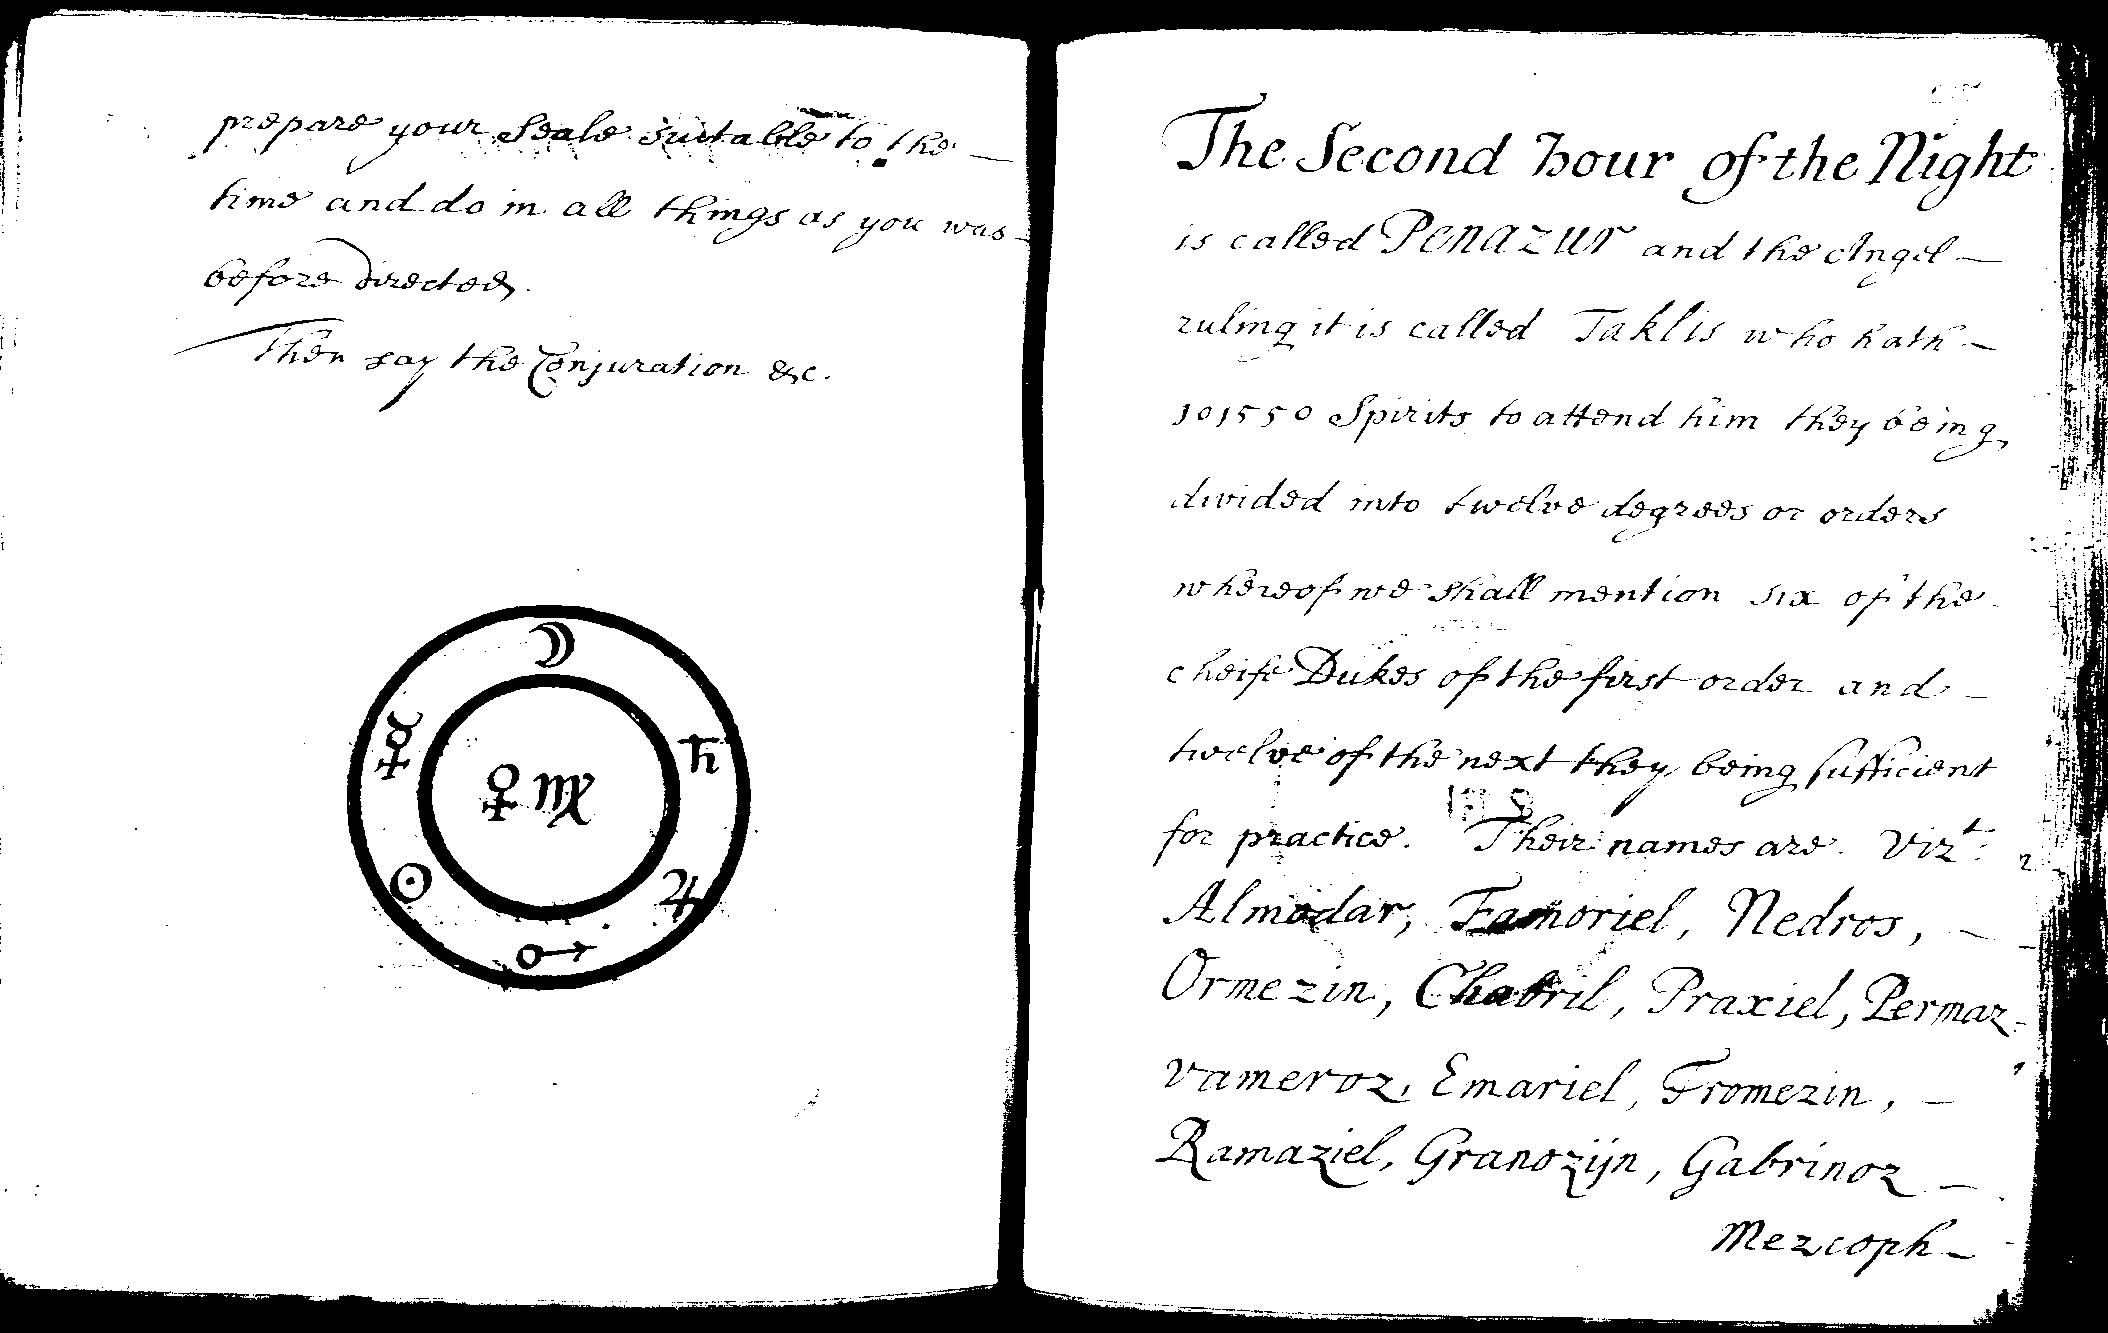 prepare your Seale suitable to the —
time and do in all things as you was —
before directed.
Then say the Conjuration &c.
☽
☿ ♄
♀ ♍
☉ ♃
♂
The Second hour of the Night
is called Penazur and the Angel —
ruling it is called Taklis who hath —
101550 Spirits to attend him they being
divided into twelve degrees or orders
whereof we shall mention six of the
cheife Dukes of the first order and —
twelve of the next they being sufficient
for practice. Their names are Vizt:
Almodar, Famoriel, Nedros, —
Ormezin, Chabril, Praxiel, Permaz
Vameroz, Emariel, Fromezin, —
Ramaziel, Granozijn, Gabrinoz —
Mezcoph —